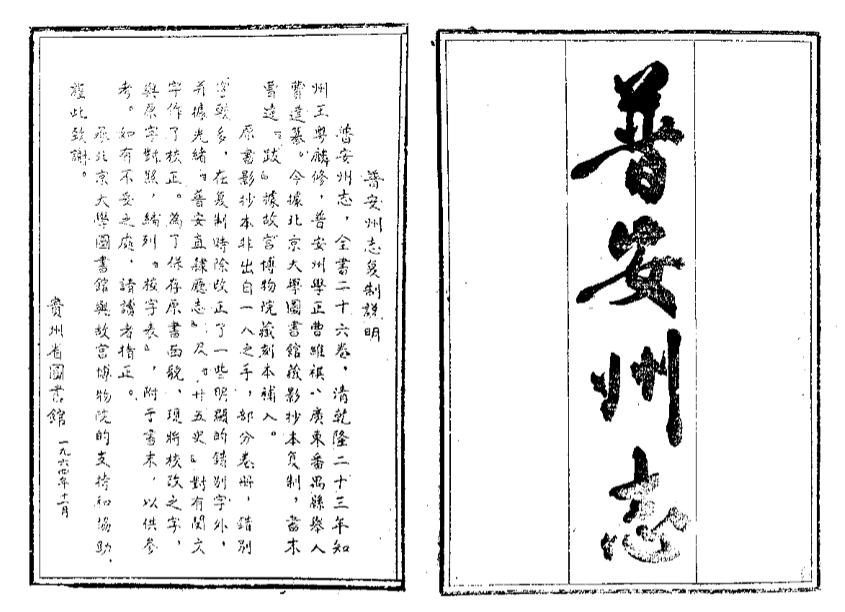 普安州志
普安州志复制説明
普安州志，全書二十六卷，清乾隆二十三年知
州王粤麟修，普安州學正曹維祺、廣東番禺縣舉人
曹達纂。今據北京大學圖書館藏影抄本复制，書末
曹達『跋』據故宫博物院藏刻本補入。
原書影抄本非出自一人之手，部分卷册，錯别
字頗多，在复制時除改正了一些明顯的錯别字外，
并據光緒『普安直隸廳志』及『廿五史』對有関文
字作了校正。為了保存原書面貌，現將校改之字，
與原字對照，編列『校字表』，附于書末，以供參
考。如有不妥之處，請讀者指正。
承北京大學圖書館與故宫博物院的支持和協助，
謹此致謝。
貴州省圖書館
一九六四年十一月